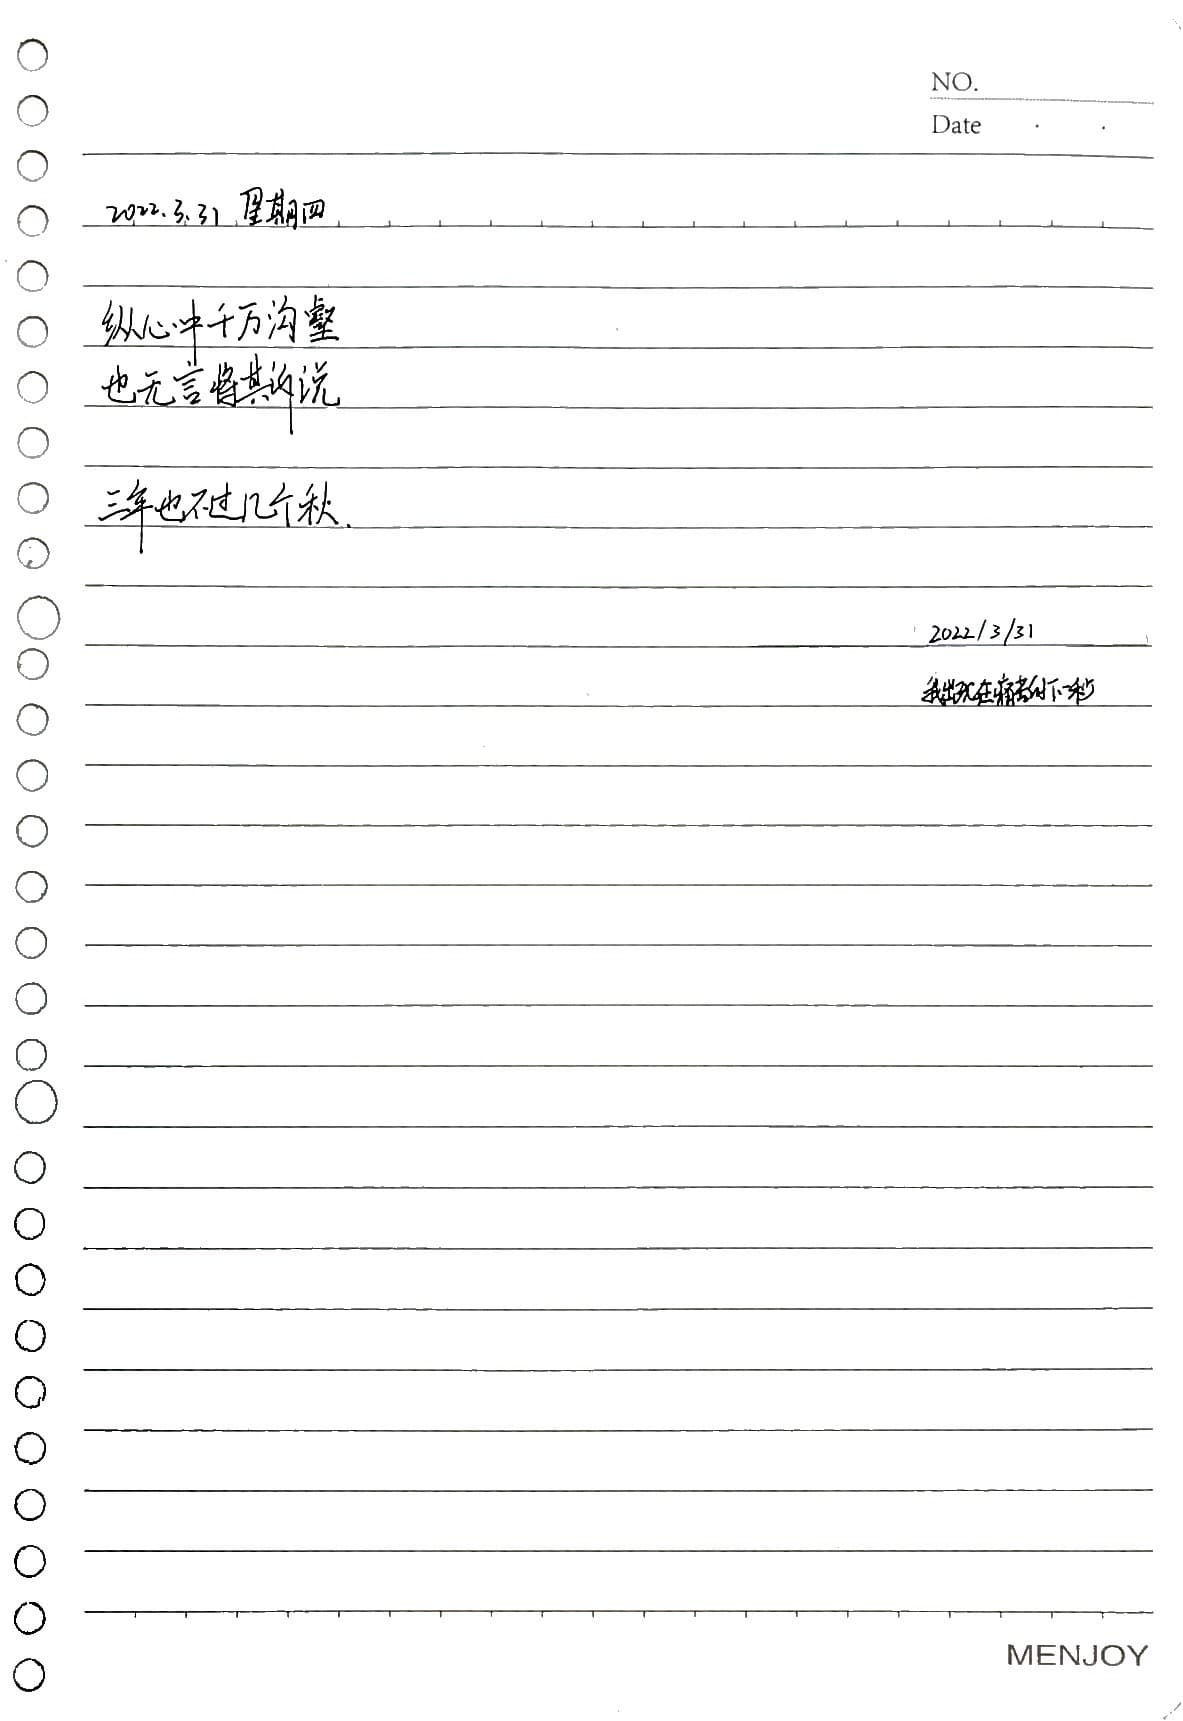 NO.
Date . .
2022.3.31 星期四
纵心中千万沟壑
也无言将其诉说
三年也不过几个秋.
2022/3/31
我出现在痛苦的下一秒
MENJOY